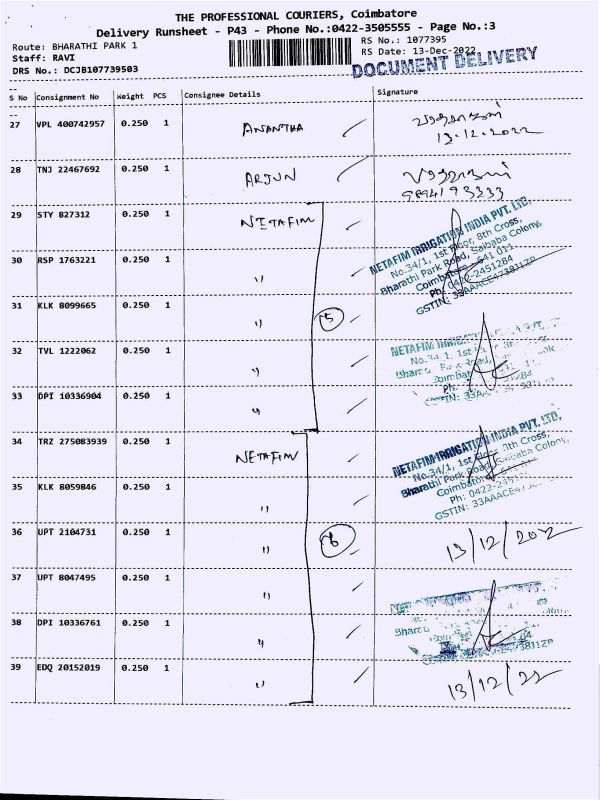 THE PROFESSIONAL COURIERS, Coimbatore
Delivery Runsheet - P43 - Phone No.:0422-3505555 - Page No.:3
Route: BHARATHI PARK 1
RS No.: 1077395
Staff: RAVI
RS Date: 13-Dec-2022
DRS No.: DCJB107739503
DOCUMENT DELIVERY
S No Consignment No Weight PCS Consignee Details Signature
27 VPL 400742957 0.250 1 ANANTHA
13.12.2022
28 TNJ 22467692 0.250 1 ARJUN
9894193333
29 STY 827312 0.250 1 NETAFIM
NETAFIM IRRIGATION INDIA PVT. LTD.
No.34/1, 1st Floor, 8th Cross,
Bharathi Park Road, Saibaba Colony,
Coimbatore - 641 011
Ph: 0422-2451284
GSTIN: 33AAACE4738J1ZP
30 RSP 1763221 0.250 1 "
31 KLK 8099665 0.250 1 " 5
32 TVL 1222062 0.250 1 "
NETAFIM
No.34/1, 1st
33 DPI 10336904 0.250 1 "
34 TRZ 275083939 0.250 1 NETAFIM
NETAFIM IRRIGATION INDIA PVT. LTD.
No.34/1, 1st Floor, 8th Cross,
Bharathi Park Road, Saibaba Colony,
Coimbatore
Ph: 0422-2451
GSTIN: 33AAACE47
35 KLK 8059846 0.250 1 "
36 UPT 2104731 0.250 1 " 6 13/12/202
37 UPT 8047495 0.250 1 "
38 DPI 10336761 0.250 1 "
39 EDQ 20152019 0.250 1 " 13/12/22